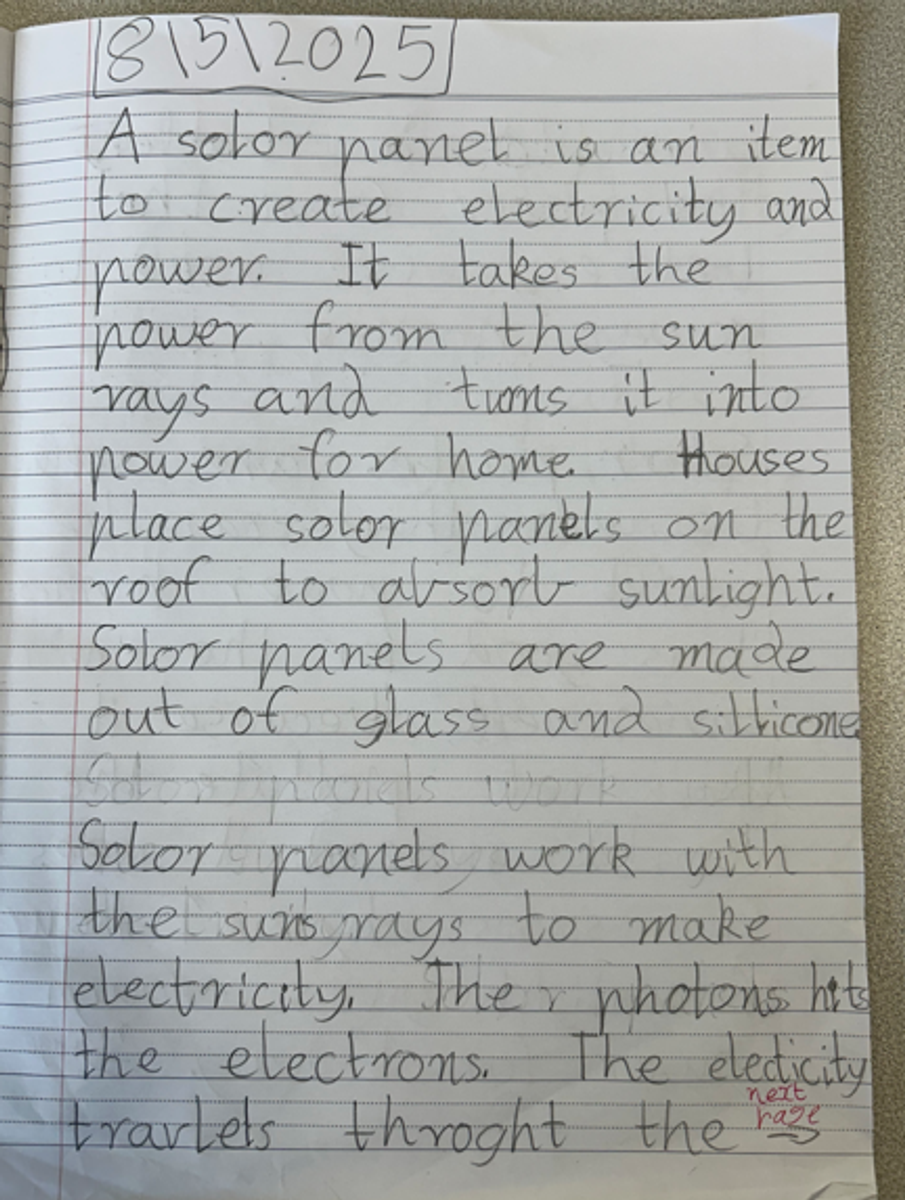 8\5\2025
A solor panel is an item
to create electricity and
power. It takes the
power from the sun
rays and turns it into
power for home. Houses
place solor panels on the
roof to absorb sunlight.
Solor panels are made
out of glass and sillicone
Solor panels work with
Solor panels work with
the suns rays to make
electricity. The photons hits
the electrons. The eledicity
travlels throght the
next
page